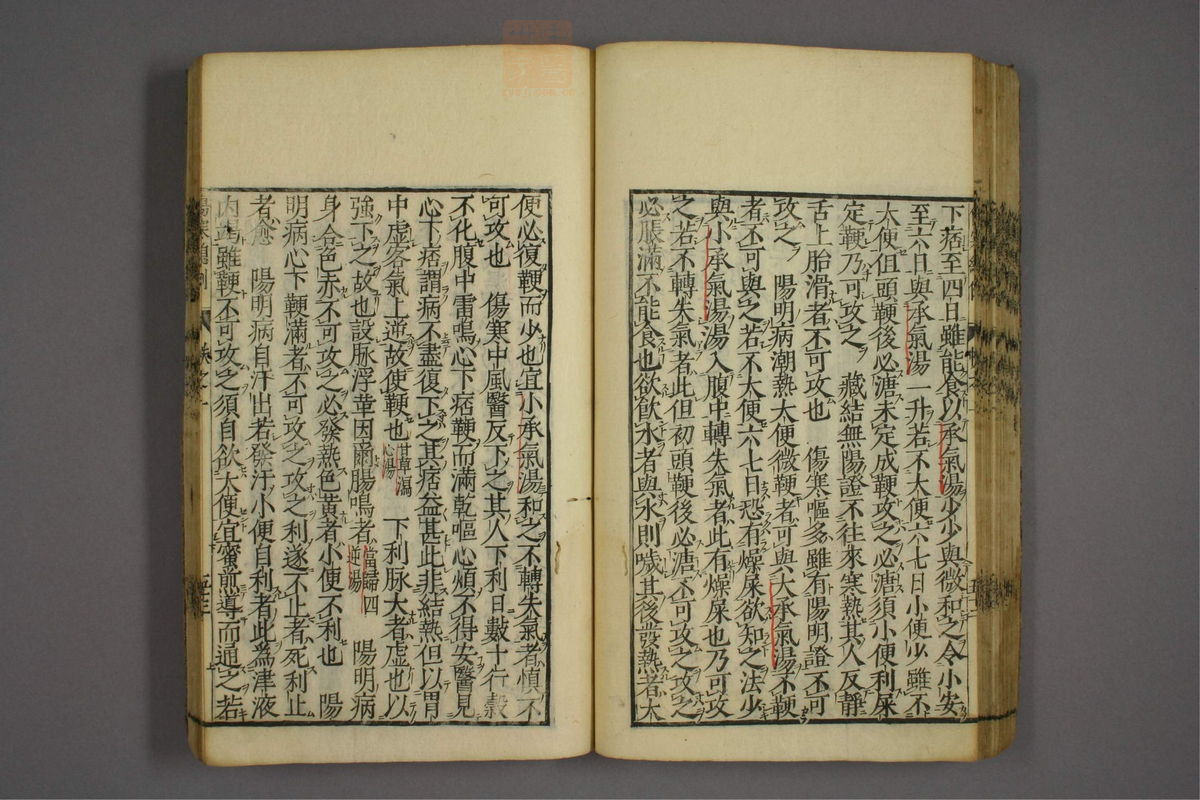 下痞至四日雖能食以承氣湯少少與微和之令小安
至六日與承氣湯一升若不大便六七日小便少雖不
大便但頭鞕後必溏未定成鞕攻之必溏須小便利屎
定鞕乃可攻之　藏結無陽證不往來寒熱其人反靜
舌上胎滑者不可攻也　傷寒嘔多雖有陽明證不可
攻之　陽明病潮熱大便微鞕者可與大承氣湯不鞕
者不可與之若不大便六七日恐有燥屎欲知之法少
與小承氣湯湯入腹中轉失氣者此有燥屎也乃可攻
之若不轉失氣者此但初頭鞕後必溏不可攻之攻之
必脹滿不能食也欲飲水者與水則噦其後發熱者大
便必復鞕而少也宜小承氣湯和之不轉失氣者慎不
可攻也　傷寒中風醫反下之其人下利日數十行穀
不化腹中雷鳴心下痞鞕而滿乾嘔心煩不得安醫見
心下痞謂病不盡復下之其痞益甚此非結熱但以胃
中虛客氣上逆故使鞕也甘草瀉心湯　下利脉大者虛也以
強下之故也設脉浮革因爾腸鳴者當歸四逆湯　陽明病
身合色赤不可攻之必發熱色黃者小便不利也　陽
明病心下鞕滿者不可攻之攻之利遂不止者死利止
者愈　陽明病自汗出若發汗小便自利者此爲津液
内竭雖鞕不可攻之須自欲大便宜蜜煎導而通之若